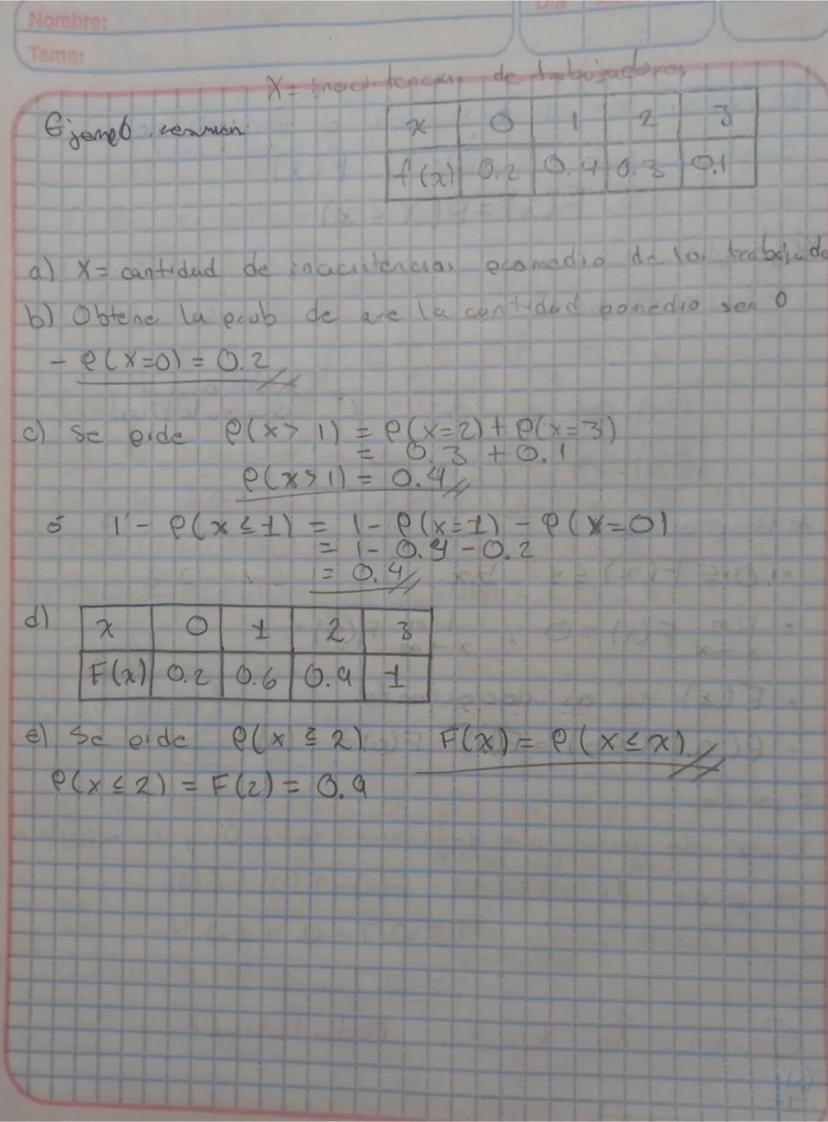 Nombre:
Tema:
X = inacistencias de trabajadores
Ejemplo
x 0 1 2 3
f(x) 0.2 0.4 0.3 0.1
a) X = cantidad de inacistencias promedio de los trabajado
b) Obtene la prob de que la cantidad pomedio sea 0
- P(X=0) = 0.2
c) Se pide P(x > 1) = P(x=2) + P(x=3)
= 0.3 + 0.1
P(x>1) = 0.4
ó 1 - P(x ≤ 1) = 1 - P(x=1) - P(x=0)
= 1 - 0.4 - 0.2
= 0.4
d) x 0 1 2 3
F(x) 0.2 0.6 0.9 1
e) Se pide P(x ≤ 2) F(x) = P(x ≤ x)
P(x ≤ 2) = F(2) = 0.9